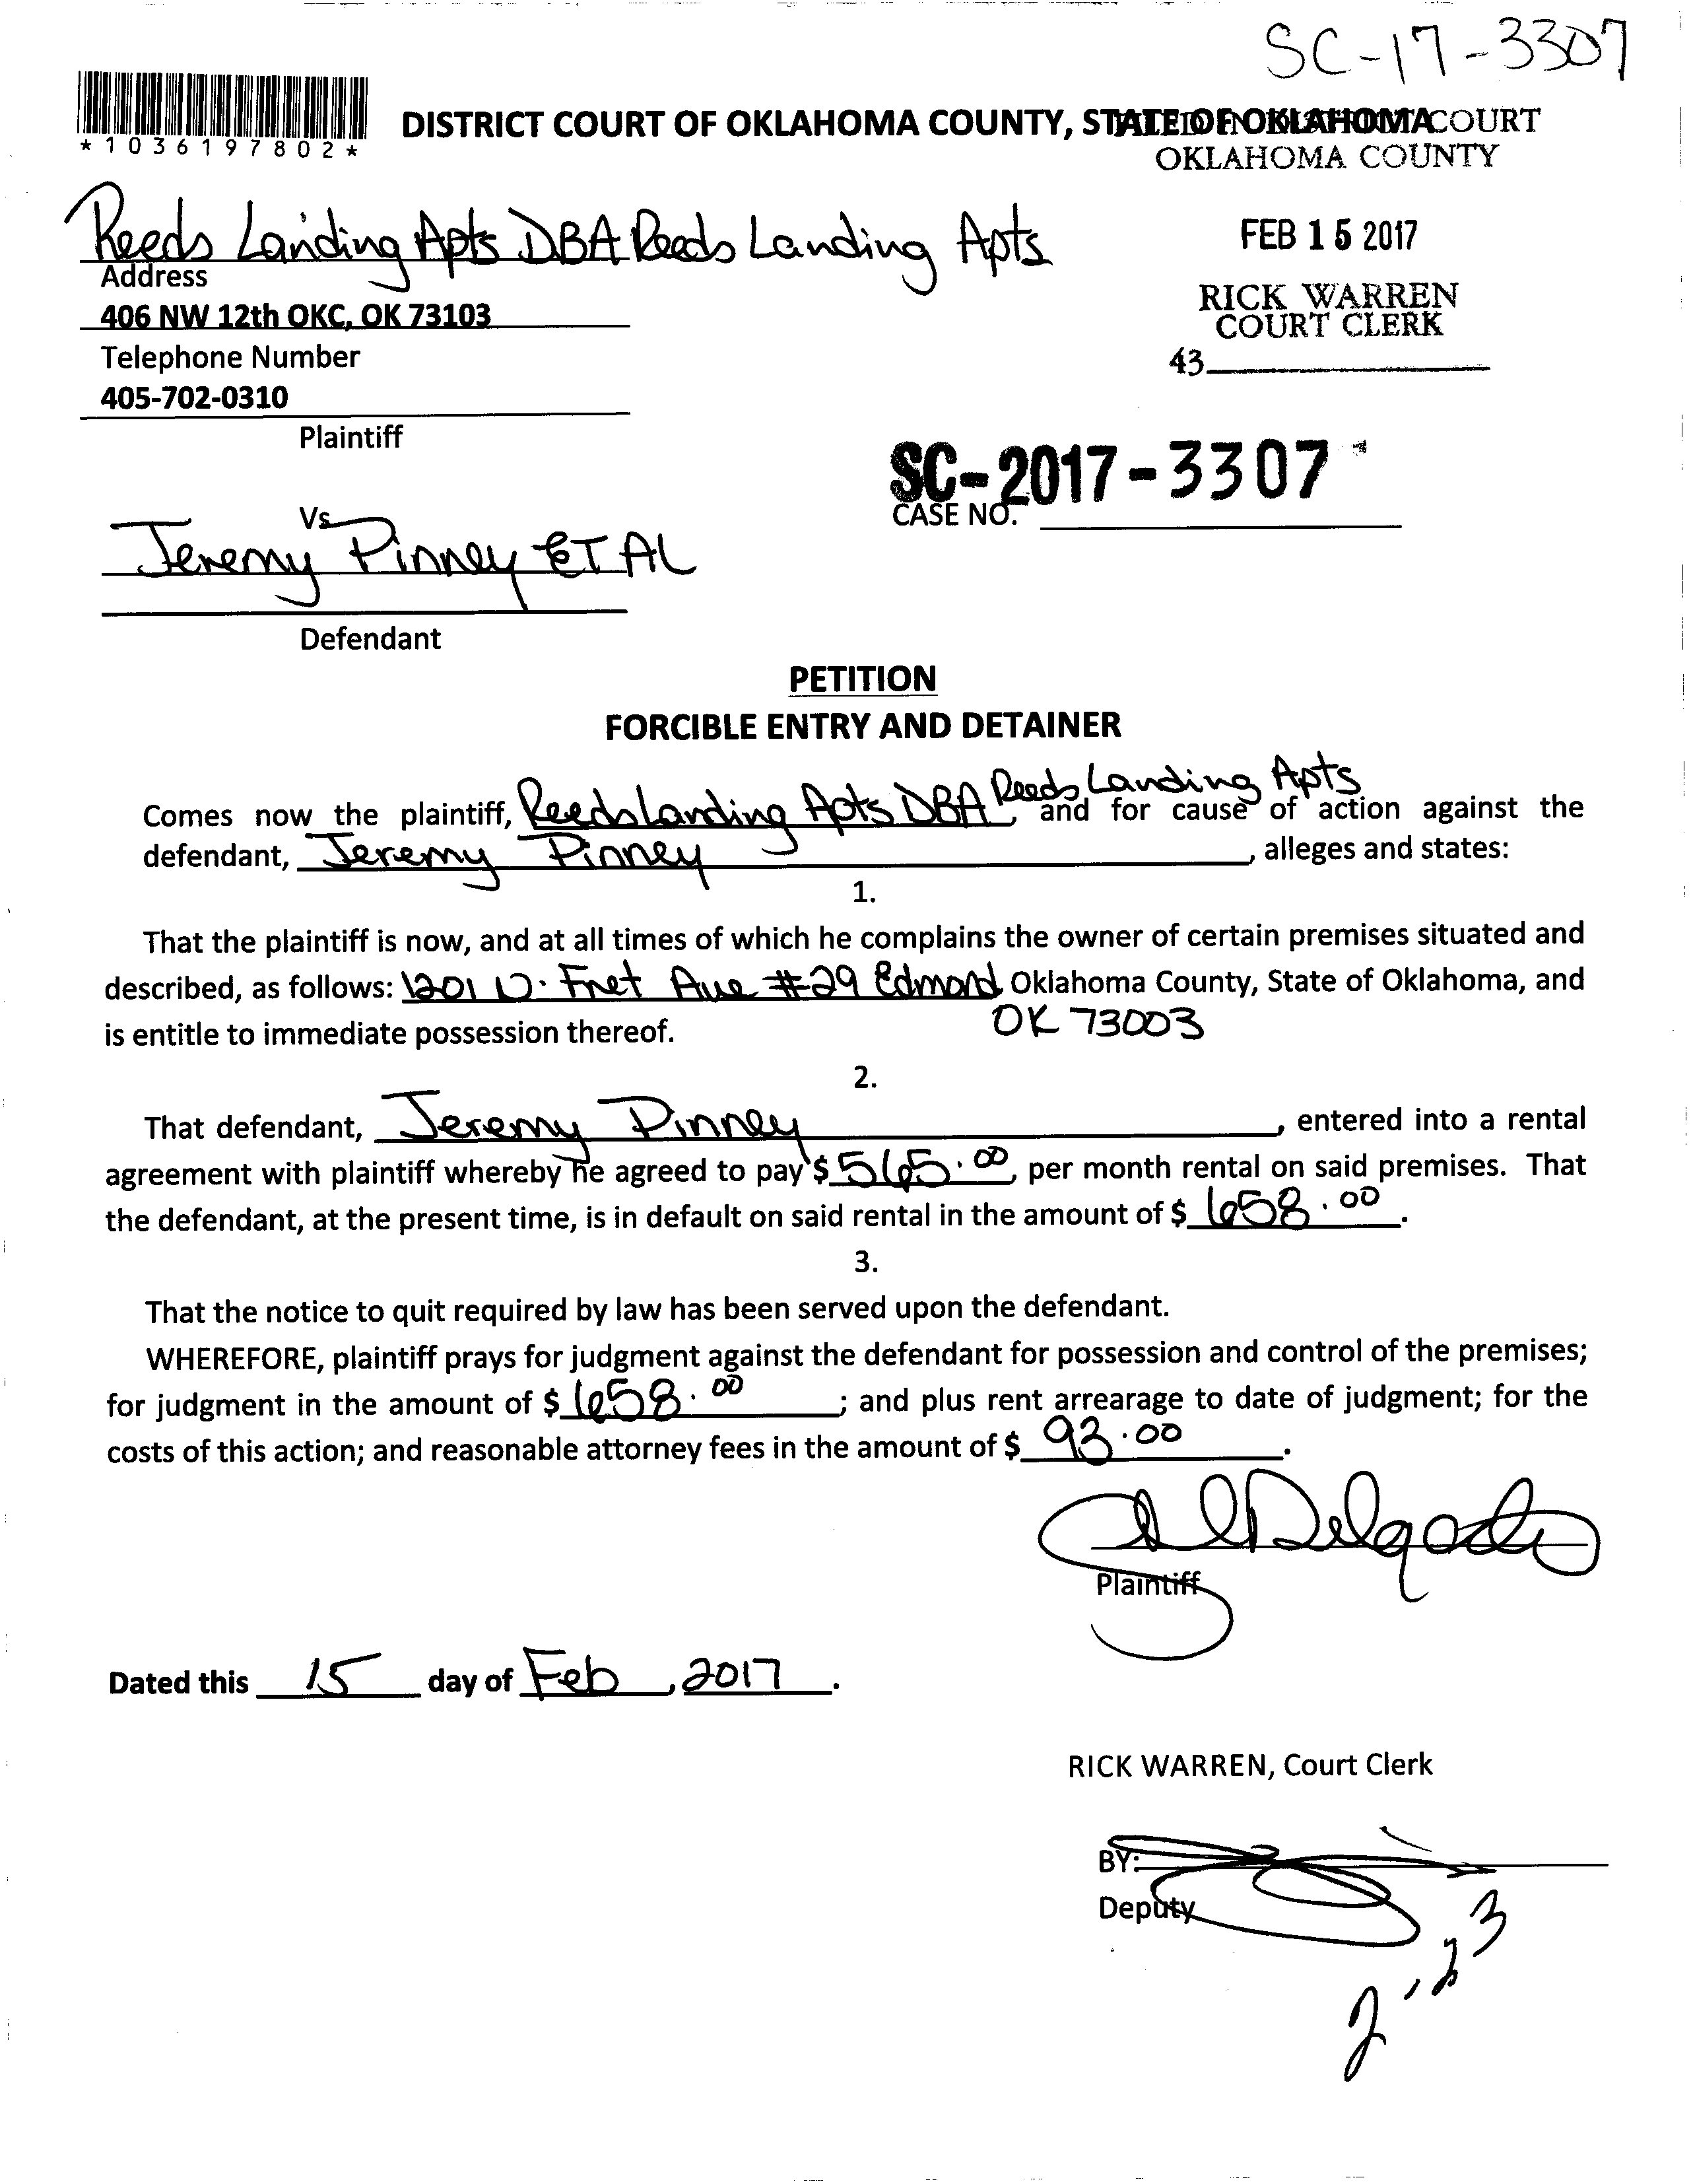 SC-17-3307
*1036197802*
DISTRICT COURT OF OKLAHOMA COUNTY, STATE OF OKLAHOMA
COURT
OKLAHOMA COUNTY
Reeds Landing Apts DBA Reeds Landing Apts
FEB 15 2017
Address
406 NW 12th OKC, OK 73103
RICK WARREN
COURT CLERK
Telephone Number
43
405-702-0310
Plaintiff
SC-2017-3307
CASE NO.
Vs
Jeremy Pinney ET AL
Defendant
PETITION
FORCIBLE ENTRY AND DETAINER
Comes now the plaintiff, Reeds Landing Apts DBA Reeds Landing Apts, and for cause of action against the
defendant, Jeremy Pinney, alleges and states:
1.
That the plaintiff is now, and at all times of which he complains the owner of certain premises situated and
described, as follows: 1201 W. Fret Ave #29 Edmond Oklahoma County, State of Oklahoma, and
is entitle to immediate possession thereof. OK 73003
2.
That defendant, Jeremy Pinney, entered into a rental
agreement with plaintiff whereby he agreed to pay $ 565.00, per month rental on said premises. That
the defendant, at the present time, is in default on said rental in the amount of $ 658.00.
3.
That the notice to quit required by law has been served upon the defendant.
WHEREFORE, plaintiff prays for judgment against the defendant for possession and control of the premises;
for judgment in the amount of $ 658.00; and plus rent arrearage to date of judgment; for the
costs of this action; and reasonable attorney fees in the amount of $ 93.00.
Delgado
Plaintiff
Dated this 15 day of Feb, 2017.
RICK WARREN, Court Clerk
BY:
Deputy